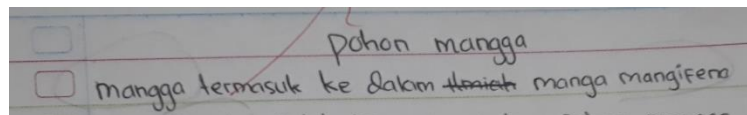 pohon mangga
mangga termasuk ke dalam ilmiah manga mangifera